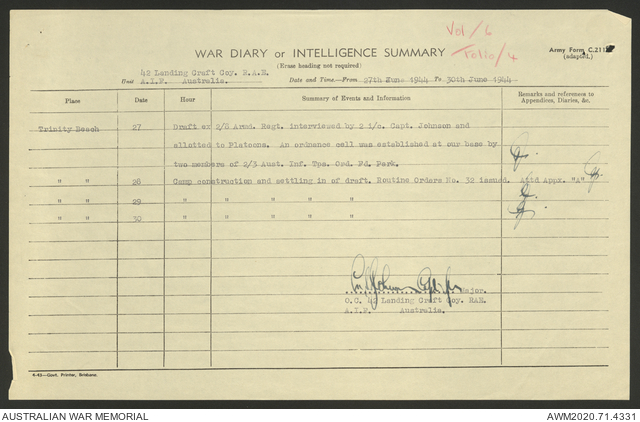 Vol/6
Folio/4
WAR DIARY or INTELLIGENCE SUMMARY
(Erase heading not required)
Army Form C.211
(adapted.)
Unit 42 Landing Craft Coy. R.A.E.
A.I.F. Australia.
Date and Time—From 27th June 1944 To 30th June 1944
Place Date Hour Summary of Events and Information Remarks and references to Appendices, Diaries, &c.
Trinity Beach 27 Draft ex 2/8 Armd. Regt. interviewed by 2 i/c. Capt. Johnson and
allotted to Platoons. An ordnance cell was established at our base by
two members of 2/3 Aust. Inf. Tps. Ord. Fd. Park.
" " 28 Camp construction and settling in of draft. Routine Orders No. 32 issued. Attd Appx. "A"
" " 29 " " " " "
" " 30 " " " " "
Major.
O.C. 42 Landing Craft Coy. RAE.
A.I.F. Australia.
4-43—Govt. Printer, Brisbane.
AUSTRALIAN WAR MEMORIAL
AWM2020.71.4331